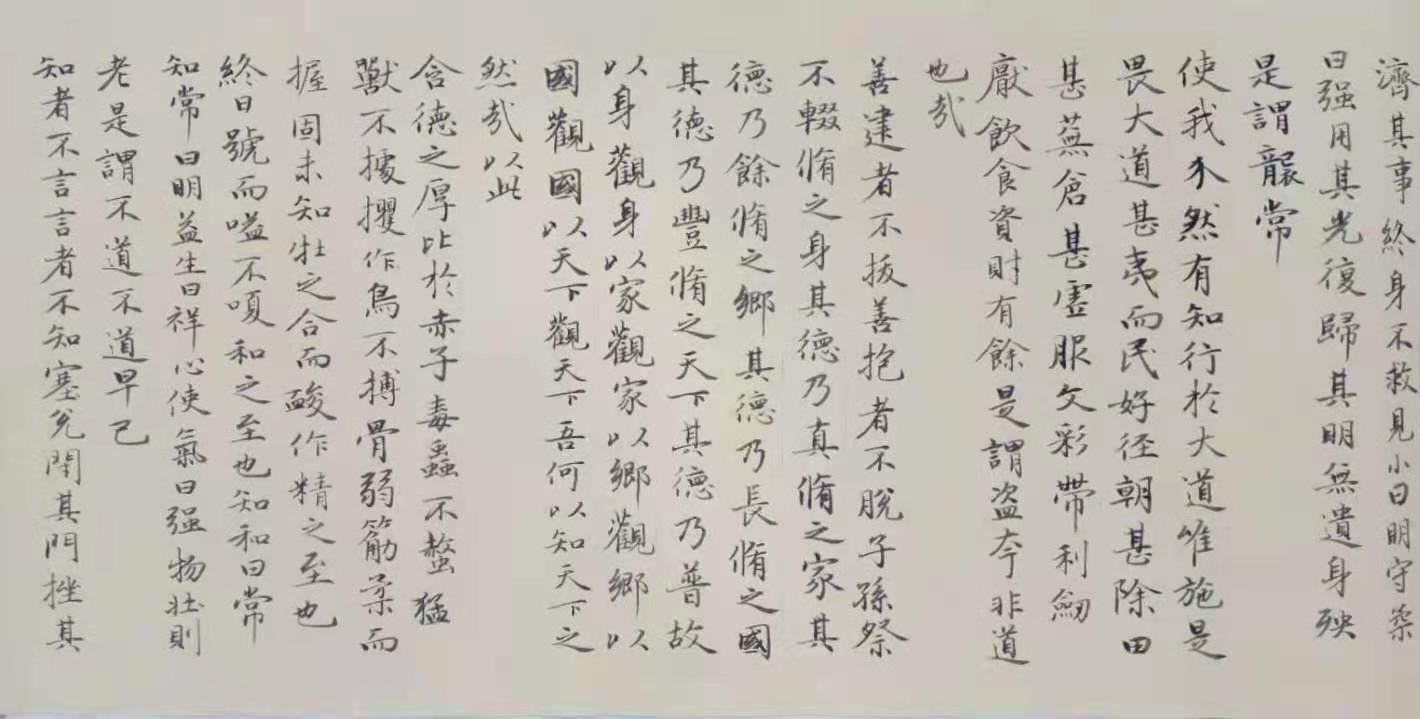 濟其事終身不救見小曰明守柔
曰强用其光復歸其明無遺身殃
是謂襲常
使我介然有知行於大道唯施是
畏大道甚夷而民好径朝甚除田
甚蕪倉甚虛服文彩帶利劒
厭飲食資財有餘是謂盗夸非道
也哉
善建者不拔善抱者不脫子孫祭
不輟脩之身其德乃真脩之家其
德乃餘脩之鄉其德乃長脩之國
其德乃豐脩之天下其德乃普故
以身觀身以家觀家以鄉觀鄉以
國觀國以天下觀天下吾何以知天下之
然哉以此
含德之厚比於赤子毒蟲不螫猛
獸不據攫作鳥不搏骨弱筋柔而
握固未知牡之合而䘒作精之至也
終日號而嗌不嗄和之至也知和曰常
知常曰明益生曰祥心使氣曰强物壯則
老是謂不道不道早已
知者不言言者不知塞兌閉其門挫其